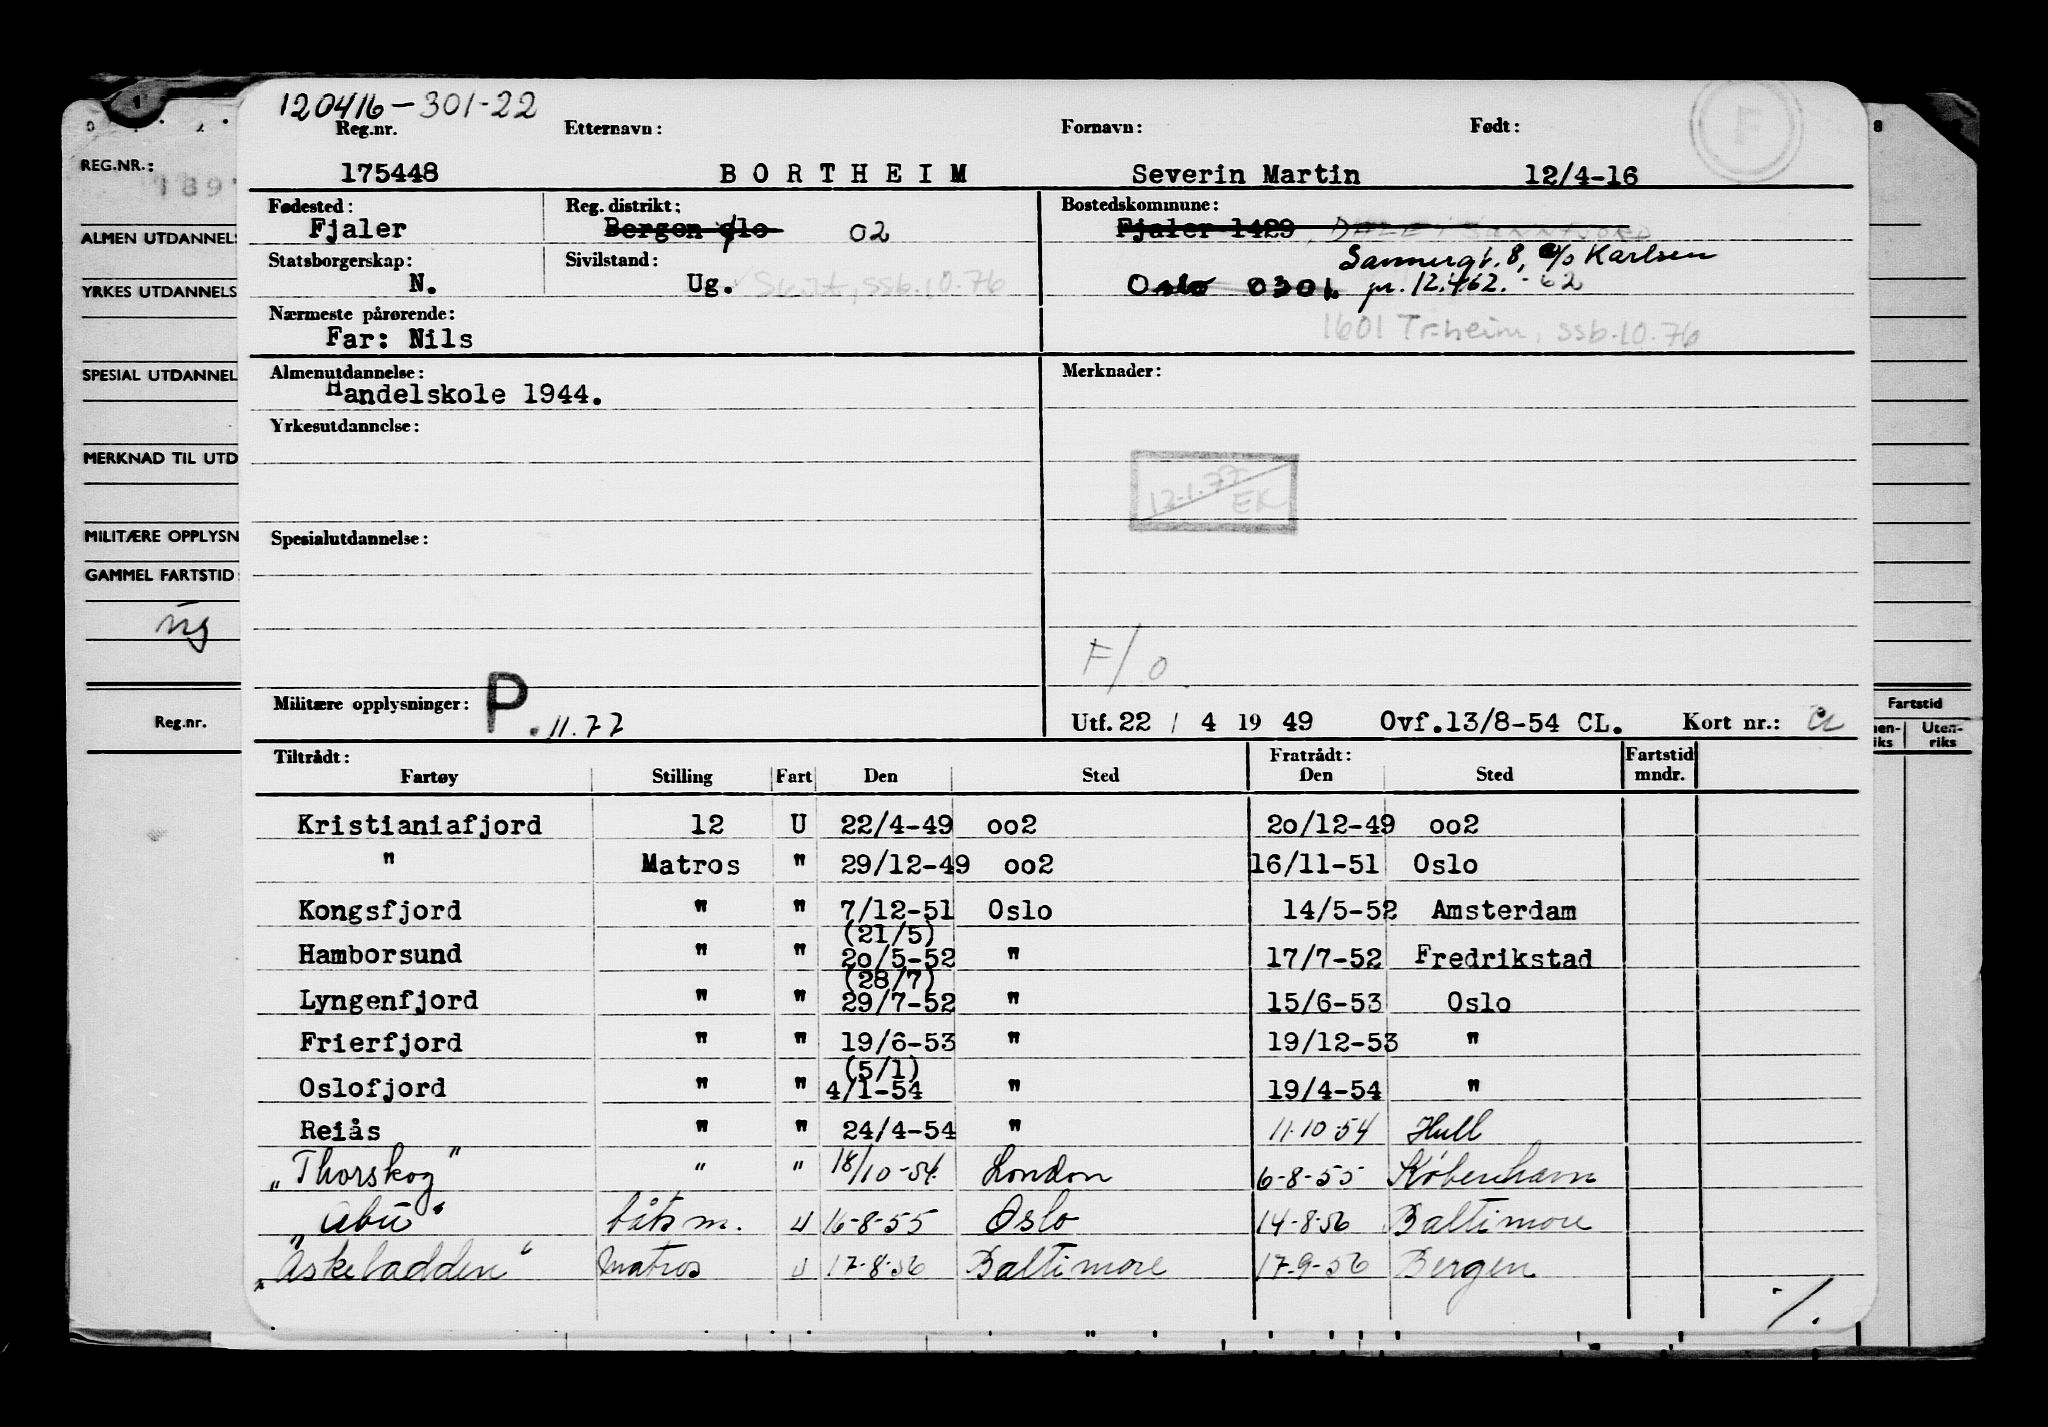 120416-301-22
Reg.nr. Etternavn: Fornavn: Født:
175448 BORTHEIM Severin Martin 12/4-16
Fødested: Reg. distrikt: Bostedskommune:
Fjaler Bergen Oslo 02 Fjaler 1429, DALE I SUNNFJORD
Sannergt. 8, c/o Karlsen
Statsborgerskap: Sivilstand:
N. Ug. Skilt, ssb.10.76 Oslo 0301. pr. 12.4.62. -62
Nærmeste pårørende:
Far: Nils 1601 Tr.heim, ssb.10.76
Almenutdannelse: Merknader:
Handelskole 1944.
Yrkesutdannelse:
12-1.77 EK
Spesialutdannelse:
F/O
Militære opplysninger: P. 11.77 Utf. 22 / 4 19 49 Ovf. 13/8-54 CL. Kort nr.:
Tiltrådt: Fratrådt: Fartstid
Fartøy Stilling Fart Den Sted Den Sted mndr.
Kristianiafjord 12 U 22/4-49 oo2 2o/12-49 oo2
" Matros " 29/12-49 oo2 16/11-51 Oslo
Kongsfjord " " 7/12-51 Oslo 14/5-52 Amsterdam
(21/5)
Hamborsund " " 2o/5-52 " 17/7-52 Fredrikstad
(28/7)
Lyngenfjord " " 29/7-52 " 15/6-53 Oslo
Frierfjord " " 19/6-53 " 19/12-53 "
(5/1)
Oslofjord " " 4/1-54 " 19/4-54 "
Reiås " " 24/4-54 " 11.10 54 Hull
"Thorskog" " " 18/10-54. London 6-8-55 København
"Abu" båtsm. U 16-8-55 Oslo 14-8-56 Baltimore
"Askeladden" Matros U 17-8-56 Baltimore 17-9-56 Bergen
-/.
REG.NR.:
189
ALMEN UTDANNELS
YRKES UTDANNELS
SPESIAL UTDANNEL
MERKNAD TIL UTD
MILITÆRE OPPLYSN
GAMMEL FARTSTID
ug
Reg.nr.
8
Fartstid
nen-
riks Uten-
riks